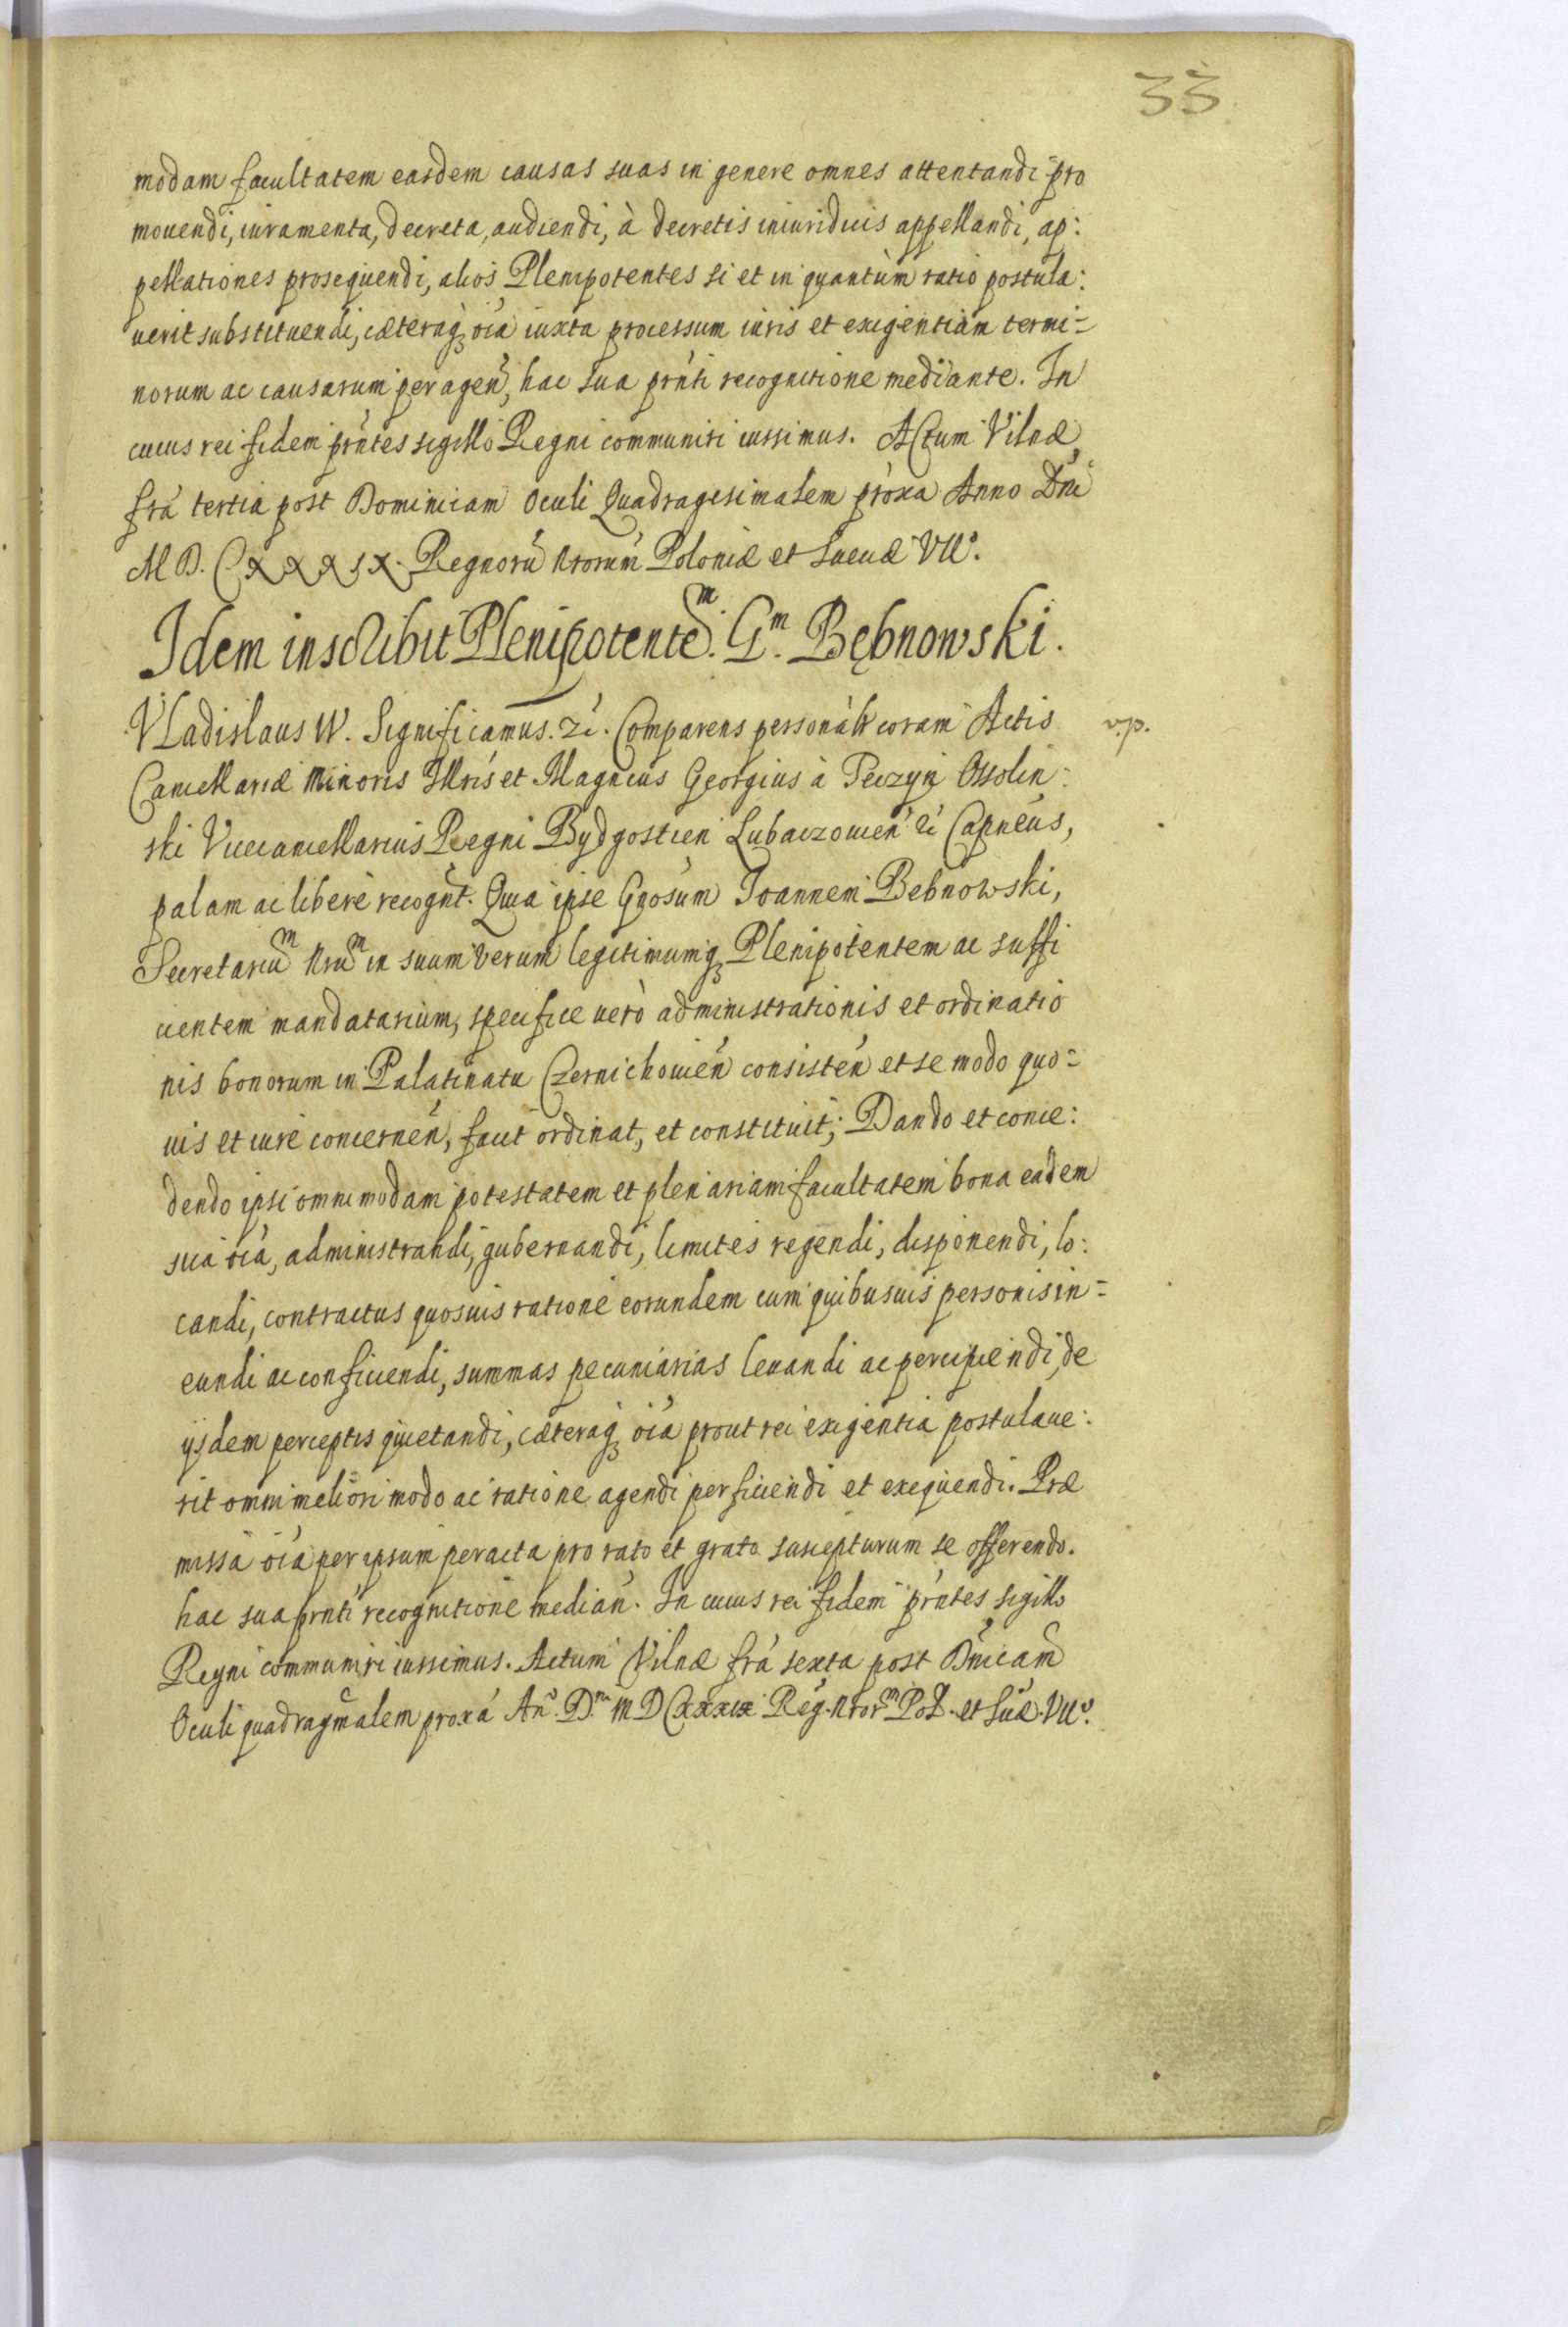 33
modam facultatem easdem causas suas in genere omnes attentandi pro
mouendi, iuramenta, decreta, audiendi, à decretis iniuridicis appellandi, ap:
pellationes prosequendi, alios Plenipotentes si et in quantùm ratio postula:
uerit substituendi, cæteraq́ oĩa iuxta processum iuris et exigentiam termi=
norum ac causarum peragen̄, hac sua prñti recognitione mediante. In
cuius rei fidem prñtes sigillo Regni communiri iussimus. Actum Vilnæ
frá tertia post Dominicam Oculi Quadragesimalem próxa Anno Dñi
M D. C X X X I X. Regnorū nrorum̄ Poloniæ et Sueciæ VIIº.
Idem inscribit Plenipotentēᵐ. Gᵐ. Bębnowski.
VLadislaus IV. Significamus. zć. Comparens personálr coram Actis
v.p.
Cancellariæ Minoris Illris et Magncus Georgius à Tęczyn Ossolin:
ski Vicecancellarius Regni Bydgostien Lubaczouien zć Capneus,
palam ac liberè recogñt. Quia ipse Gnosum Joannem Bebnowski,
Secretariūᵐ nrūᵐ in suum verum legitimumq́ Plenipotentem ac suffi
cientem mandatarium, specifice uerò administrationis et ordinatio
nis bonorum in Palatinatu Czernichouien̄ consisten̄ et se modo quo=
uis et iure concernen̄, facit ordinat, et constituit; Dando et conce:
dendo ipsi omnimodam potestatem et plenariam facultatem bona eadem
sua oĩa, administrandi, gubernandi, limites regendi, disponendi, lo:
candi, contractus quosuis ratione eorundem cum quibusuis personis in=
eundi ac conficiendi, summas pecuniarias leuandi ac percipiendi, de
ijsdem perceptis quietandi, cæteraq́ oĩa prout rei exigentia postulaue:
rit omni meliori modo ac ratione agendi perficiendi et exequendi. Præ
missa oĩa per ipsum peracta pro rato et grato suscepturum se offerendo.
hac sua prñti recognitione median̄. In cuius rei fidem prñtes sigillo
Regni communiri iussimus. Actum Vilnæ frá sexta post Dñicam
Oculi quadragm̃alem proxá Anº. Dⁿⁱ M D C xxxix Reg. nrorᵐ Pol. et Suæ. VIIº.